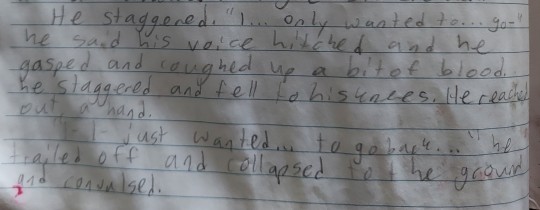 He staggered. "I... only wanted to... go-"
he said his voice hitched and he
gasped and coughed up a bit of blood.
he staggered and fell to his knees. He reached
out a hand.
"I-I- just wanted... to go back...." he
trailed off and collapsed to the ground
and convulsed.